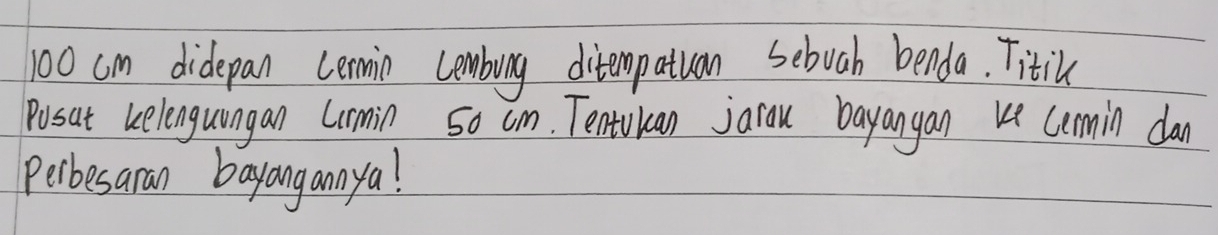 100 cm didepan cermin cembung ditempatkan sebuah benda. Titik
Pusat kelengkungan cermin 50 cm. Tentukan jarak bayangan ke cermin dan
Perbesaran bayangannya!